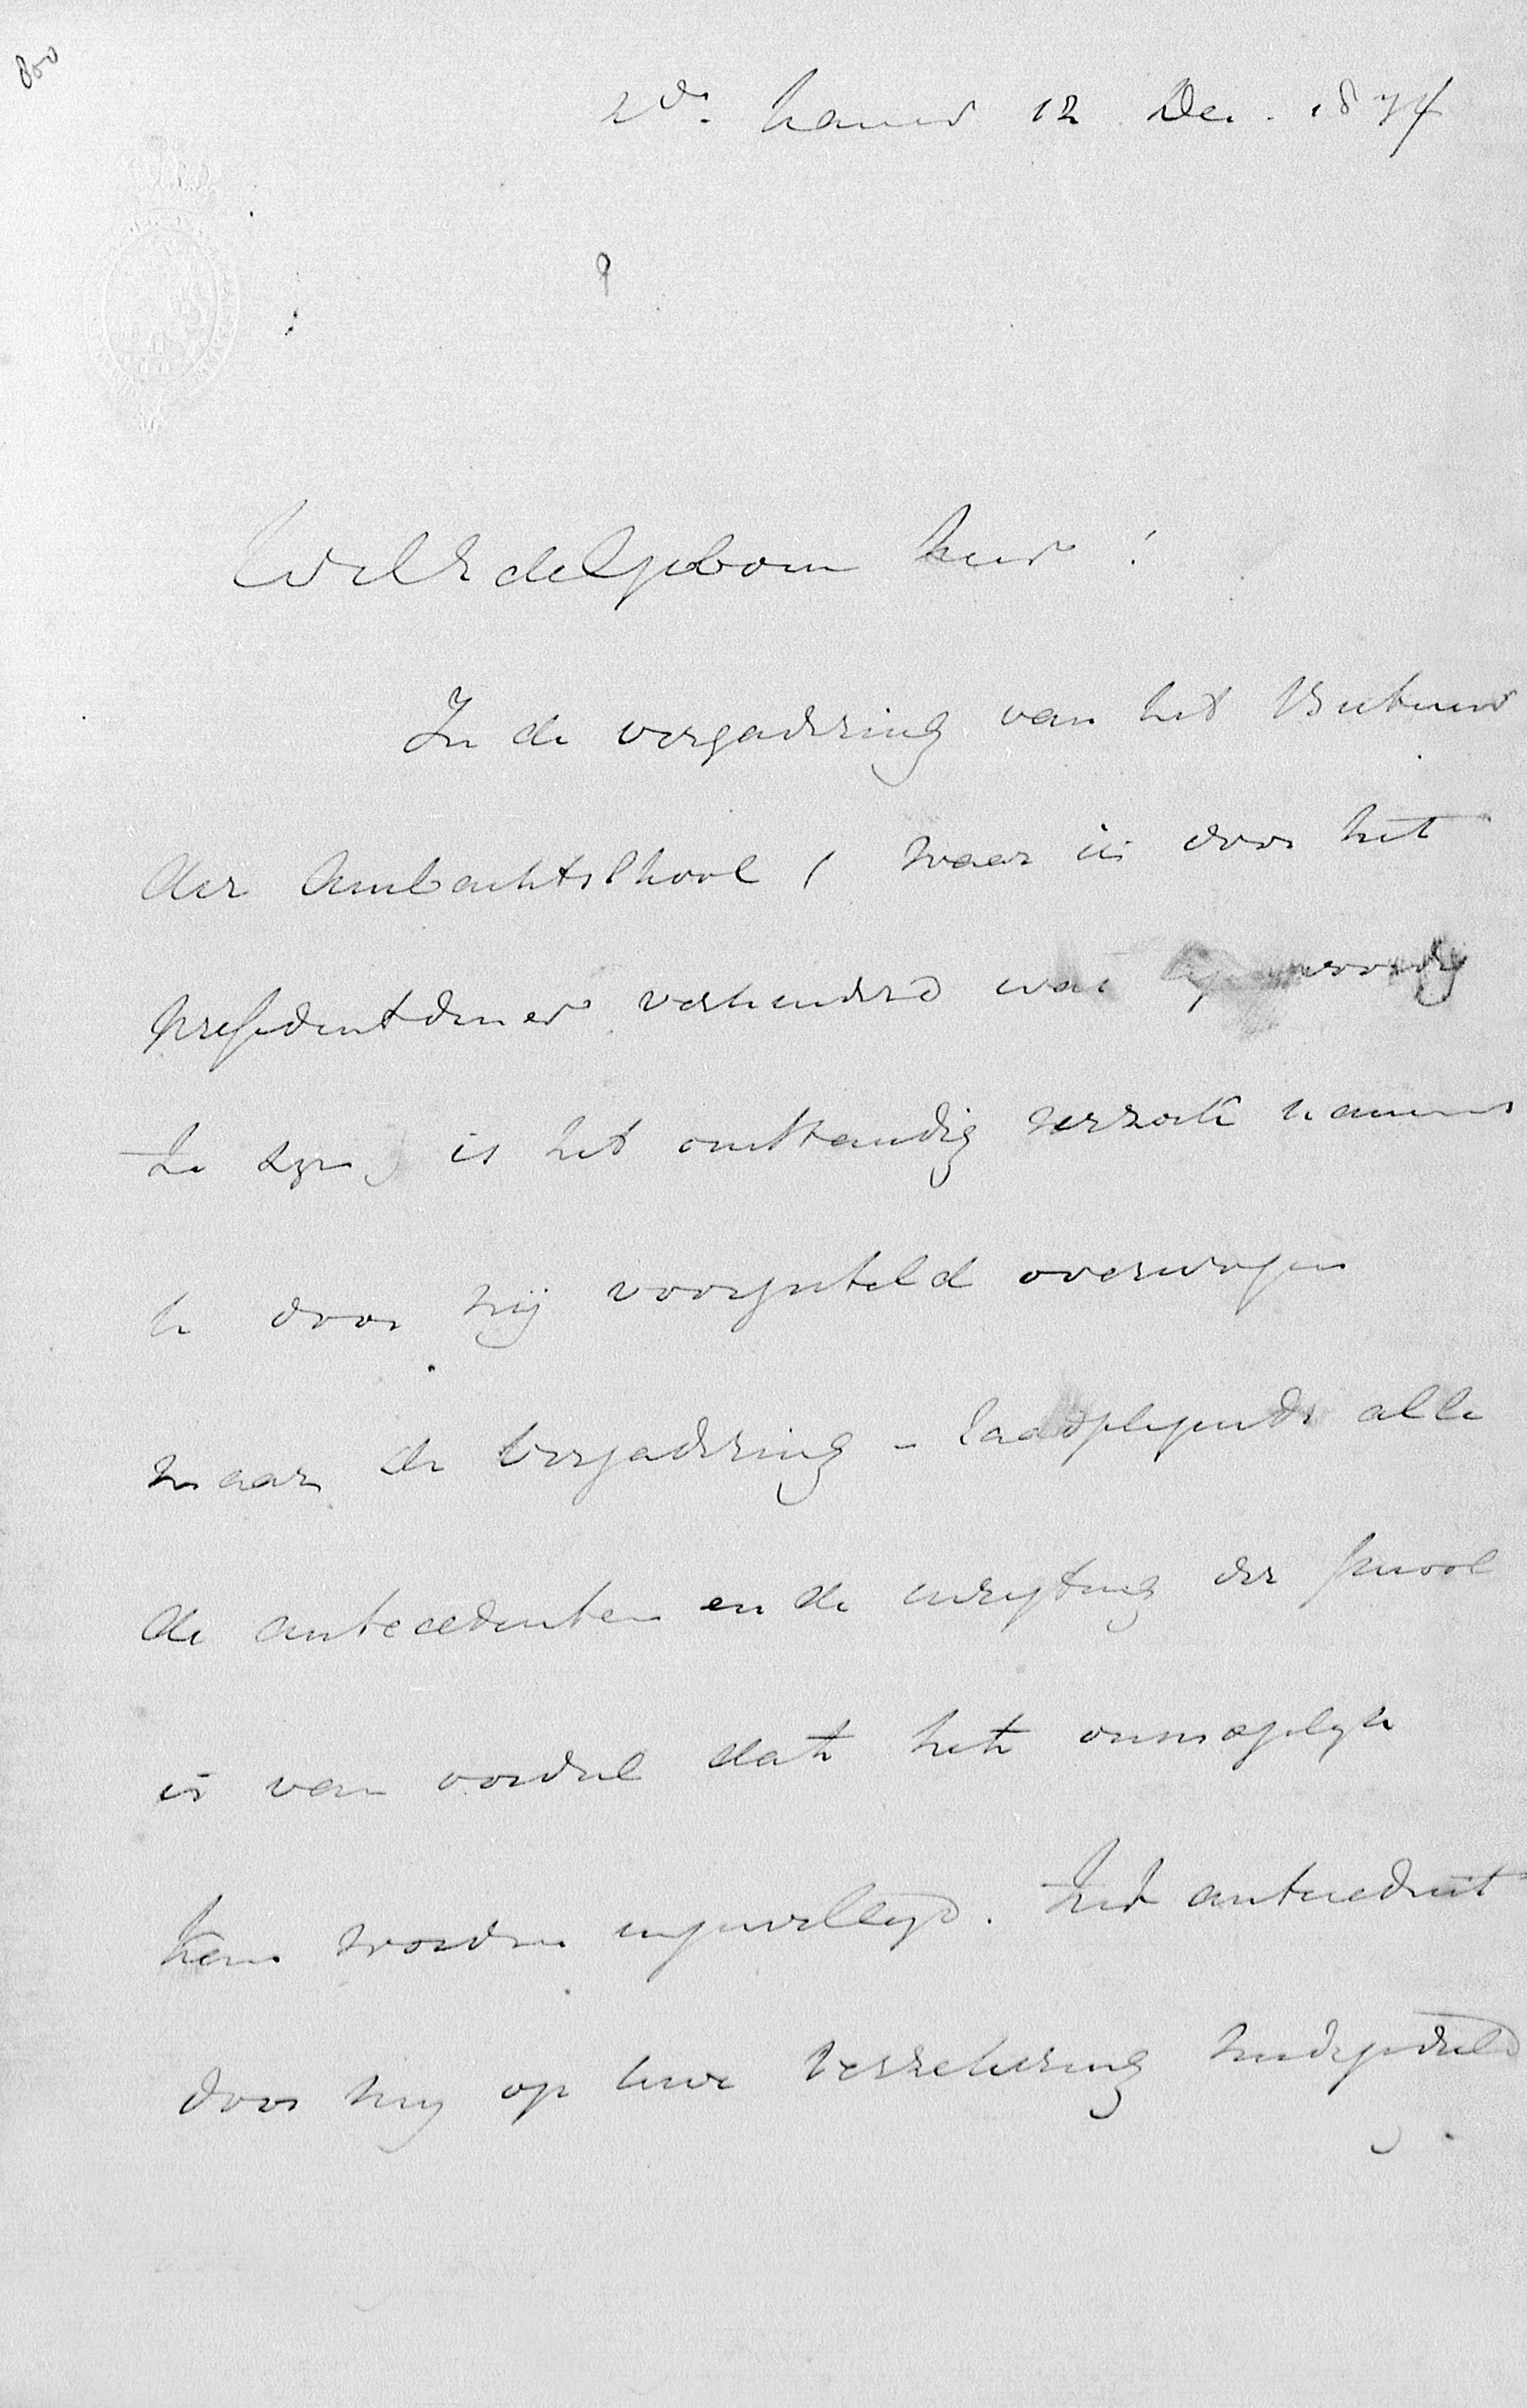 800
2de Kamer 12 Dec. 1874
WelEdelgeboren heer!
In de vergadering van het Bestuur
der Ambachtsschool (waar ik door het
presidentdiner verhinderd was tegenwoordig
te zyn) is het omstandig verzoek namens
door mij voorgesteld overwogen
maar de vergadering - raadplegende alle
de antecedenten en de inrigting der school
is van oordeel dat het onmogelyk
kan worden ingewilligd. Het antecedent
door my op uwe verzekering medegedeeld